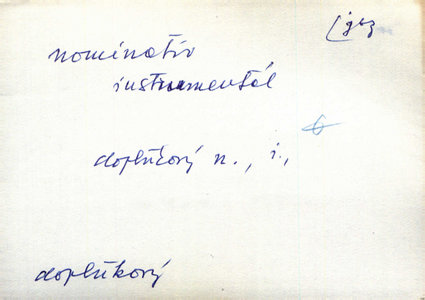 (jaz
nominativ
instrumentál
doplňkový n., i.,
doplňkový